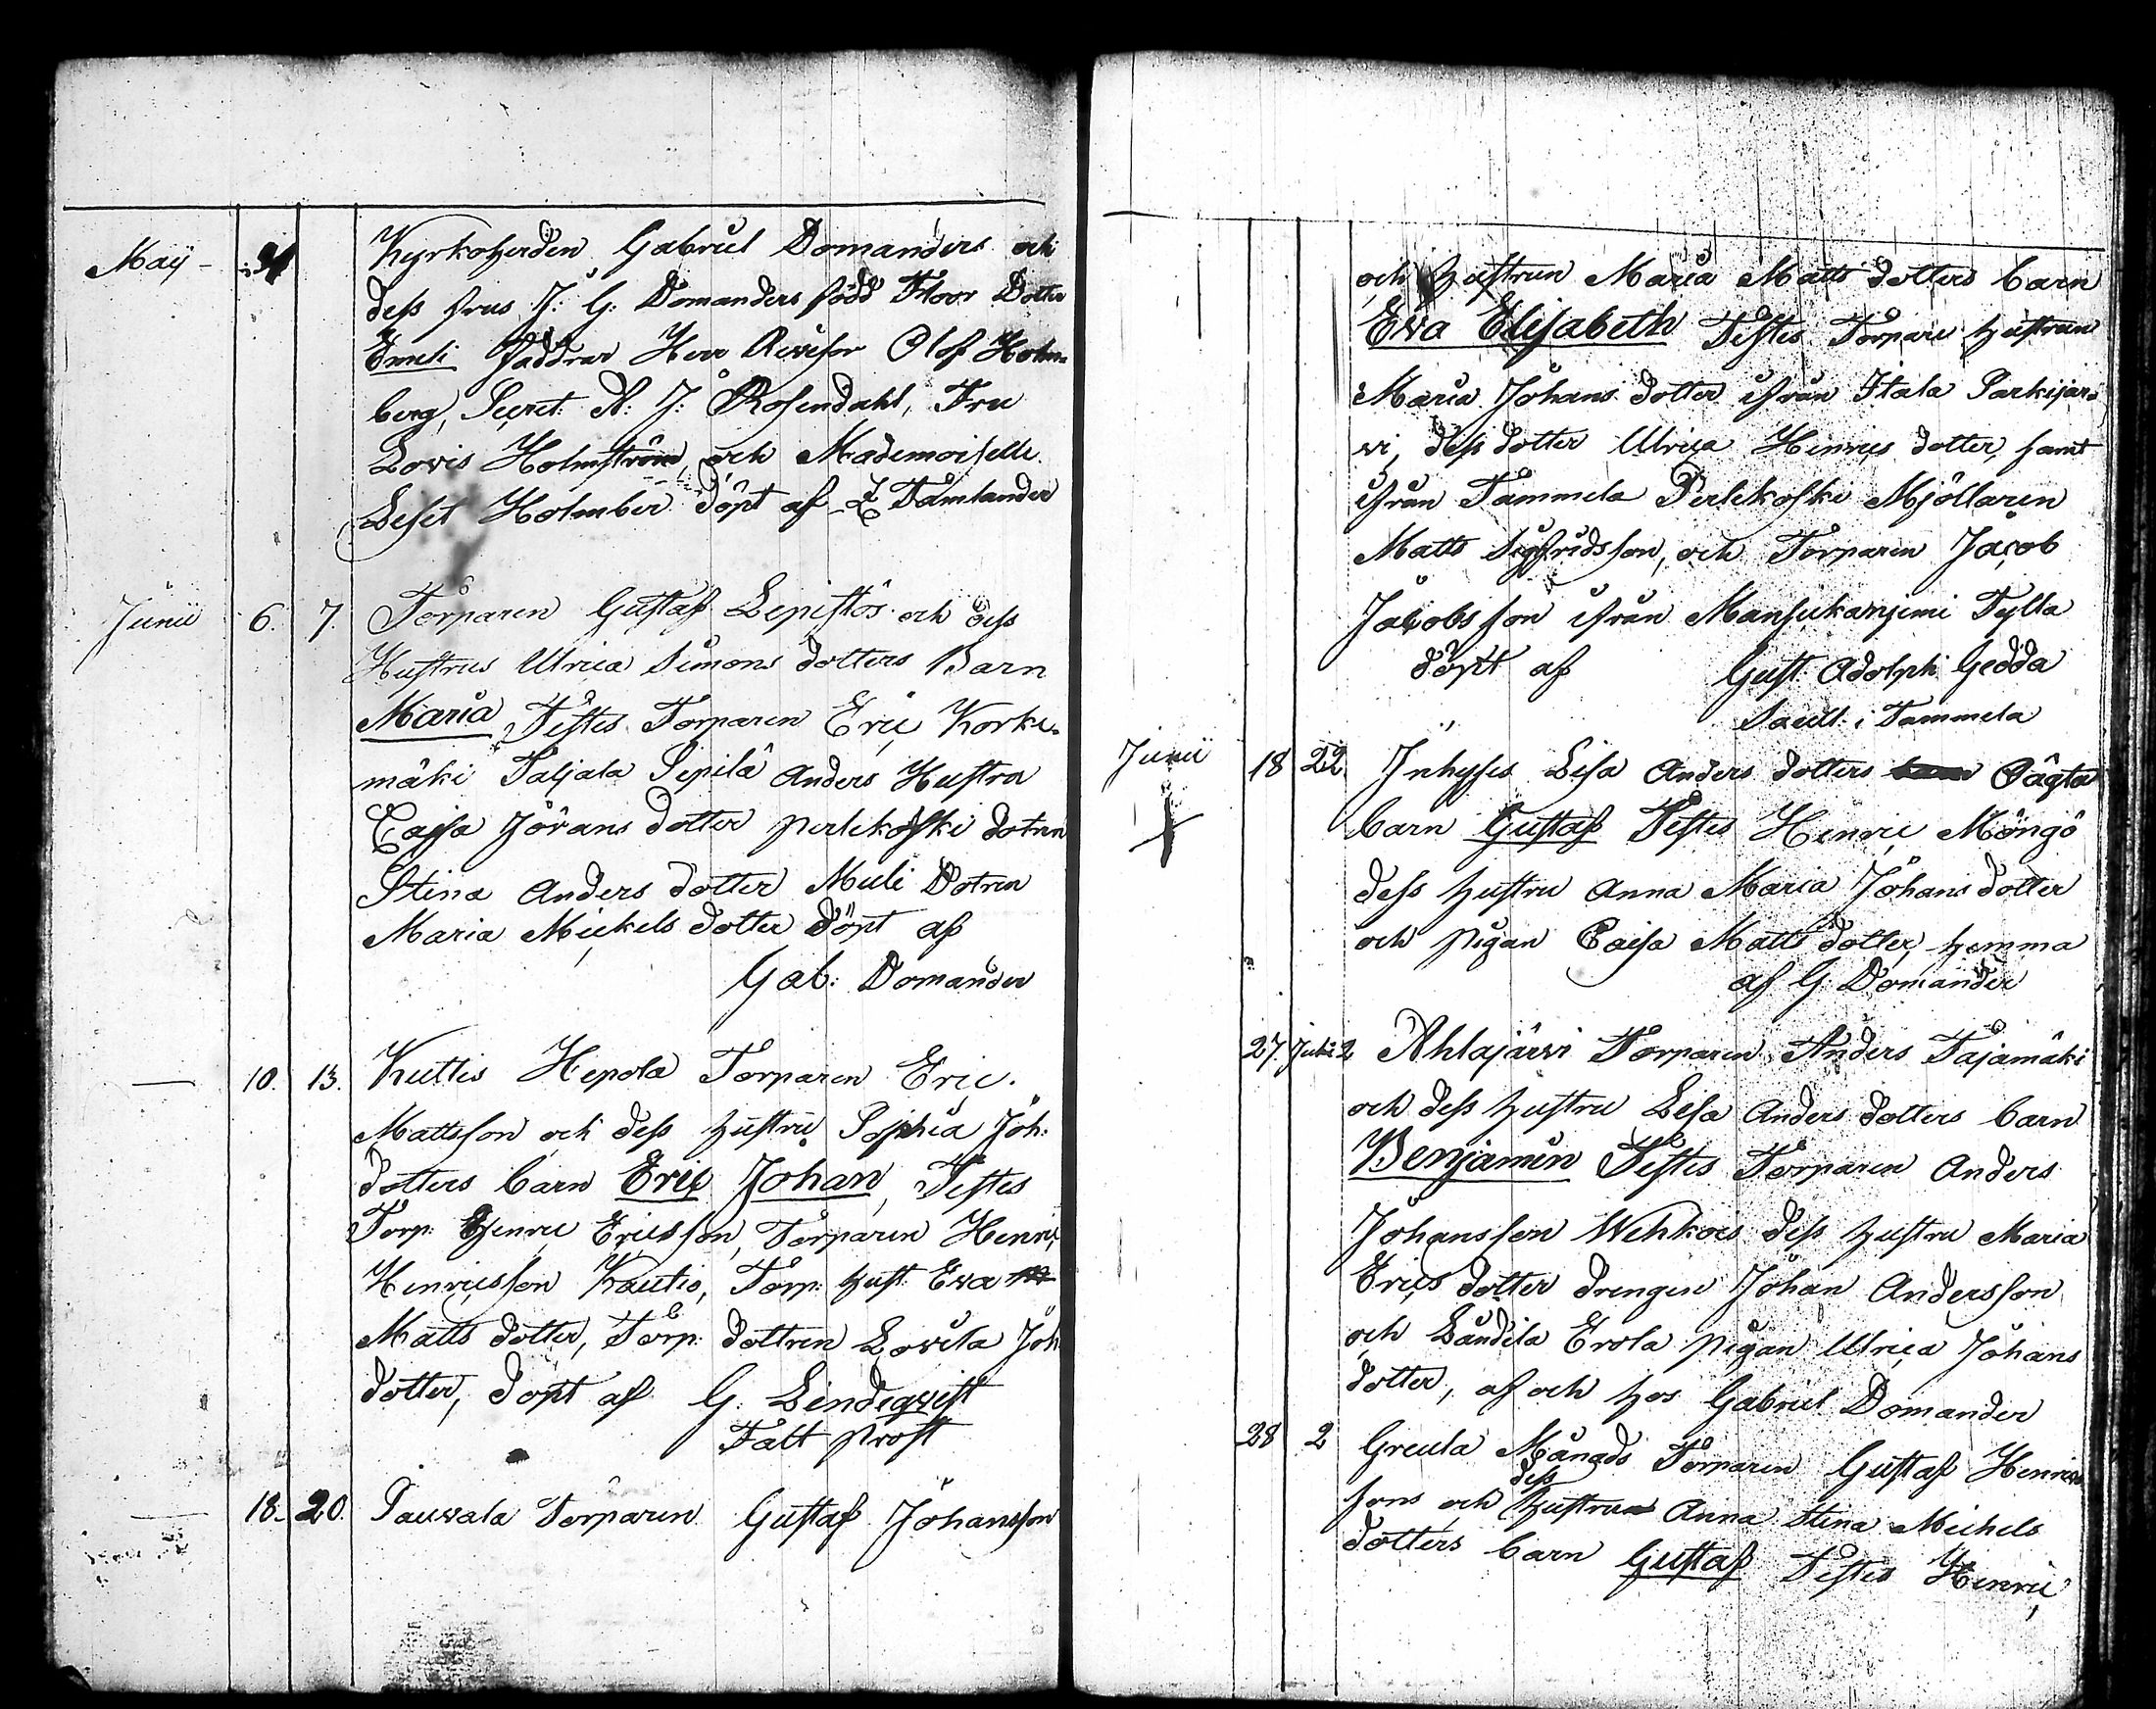 Maij - 31 Kyrkoherden Gabriel Domanders och
dess frus J: G: Domanders född Floor Dotter
Emeli Faddrar Herr Revisor Olof Holm-
berg, Secret: A: J: Rosendahl, Fru
Lovis Holmström, och Mademoiselle
Leset Holmber döpt af Tämlander
Junii 6. 7. Torparen Gustaf Lepistös och dess
Hustrus Ulrica Simons dotters Barn
Maria Testes Torparen Eric Korke-
mäki Taljala Sipilä Anders Hustru
Cajsa Jörans dotter Perlekoski dotren
Stina Anders dotter Muli Dotren
Maria Mickels dotter döpt af
Gab: Domander
— 10. 13. Kuttis Hepola Torparen Eric
Mattsson och dess hustru Sophia Joh:
dotters barn Eric Johan, Testes
Torp: Henric Ericsson, Torparen Henric
Henricsson Kautio, Torp: hust Eva
Matts dotter, Torp: dottren Lovisa Joh
dotter, döpt af G: Lindeqvist
Fält prost
— 18. 20. Pauvala Torparen Gustaf Johansson
och hustrun Maria Matts dotters barn
Eva Elisabeth Testes Torpare hustrun
Maria Johans dotter ifrån Itala Särkijär-
vi, dess dotter Ulrica Henrics dotter, samt
ifrån Tammela Perlekoski Mjöllaren
Matts Sigfridsson, och Torparen Jacob
Jacobsson ifrån Mansikaniemi Tylla
döpt af Gust: Adolph Gedda
Sacell: i Tammela
Junii 18 22 Inhyses Lisa Anders dotters Oägta
barn Gustaf Testes Henric Möngö
dess hustru Anna Maria Johans dotter
och pigan Caisa Matts dotter, hemma
af G: Domander
27. Julii 2 Ahlajärvi Torparen Anders Tajamäki
och dess hustru Lisa Anders dotters barn
Benjamin Testes Torparen Anders
Johansson Wehkois dess hustru Maria
Erics dotter drengen Johan Andersson
och Laudila Erola pigan Ulrica Johans
dotter, af och hos Gabriel Domander
28 2 Greula Månads Torparen Gustaf Henrics
sons och dess hustrus Anna Stina Michels
dotters barn Gustaf Testes Henric